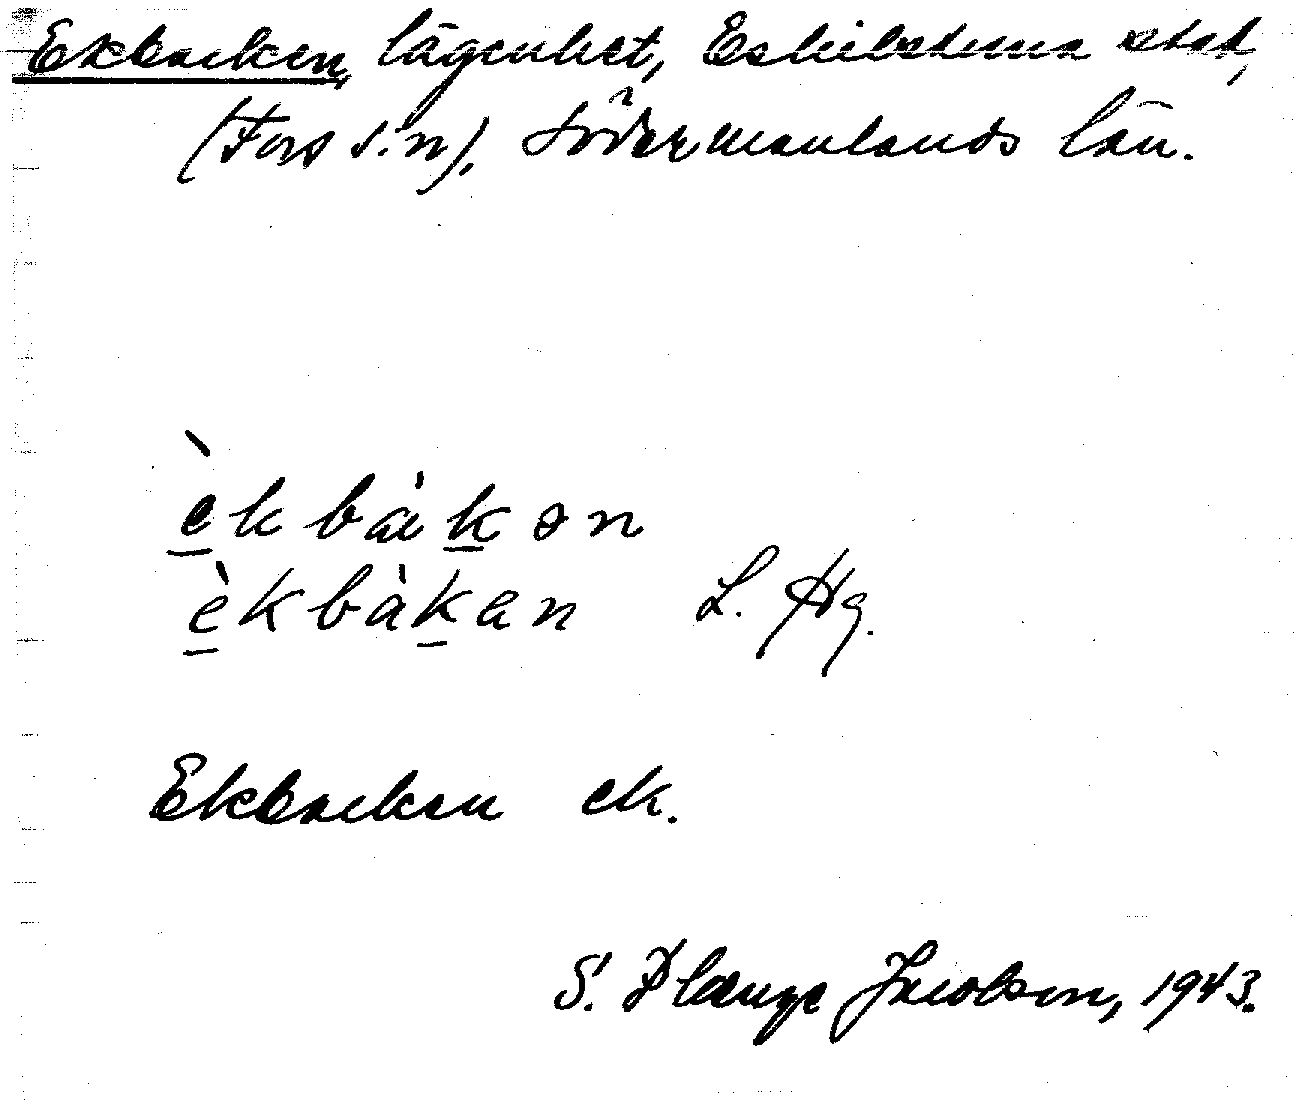 Ekbacken, lägenhet, Eskilstuna stad,
(Fors s:n), Södermanlands län.
èkbàkən
èkbàkan L. Hg.
Ekbacken ek.
S. Plænge Jacobson, 1943.